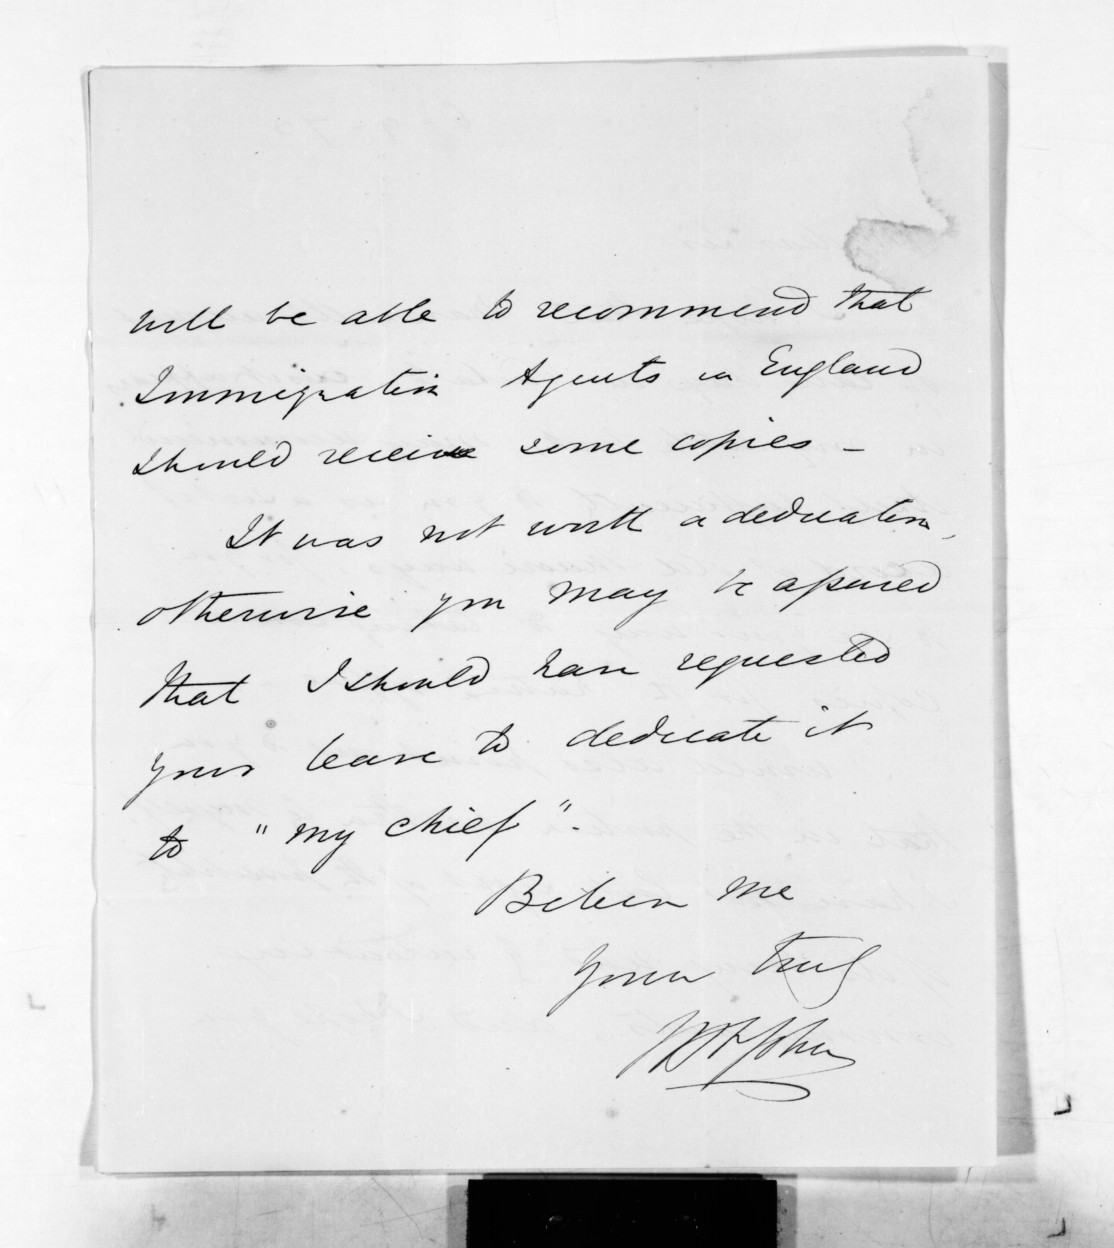 will be able to recommend that
Immigration Agents in England
should receive some copies -
It was not worth a dedication,
otherwise you may be assured
that I should have requested
your leave to dedicate it
to "my chief".
Believe me
Yours truly